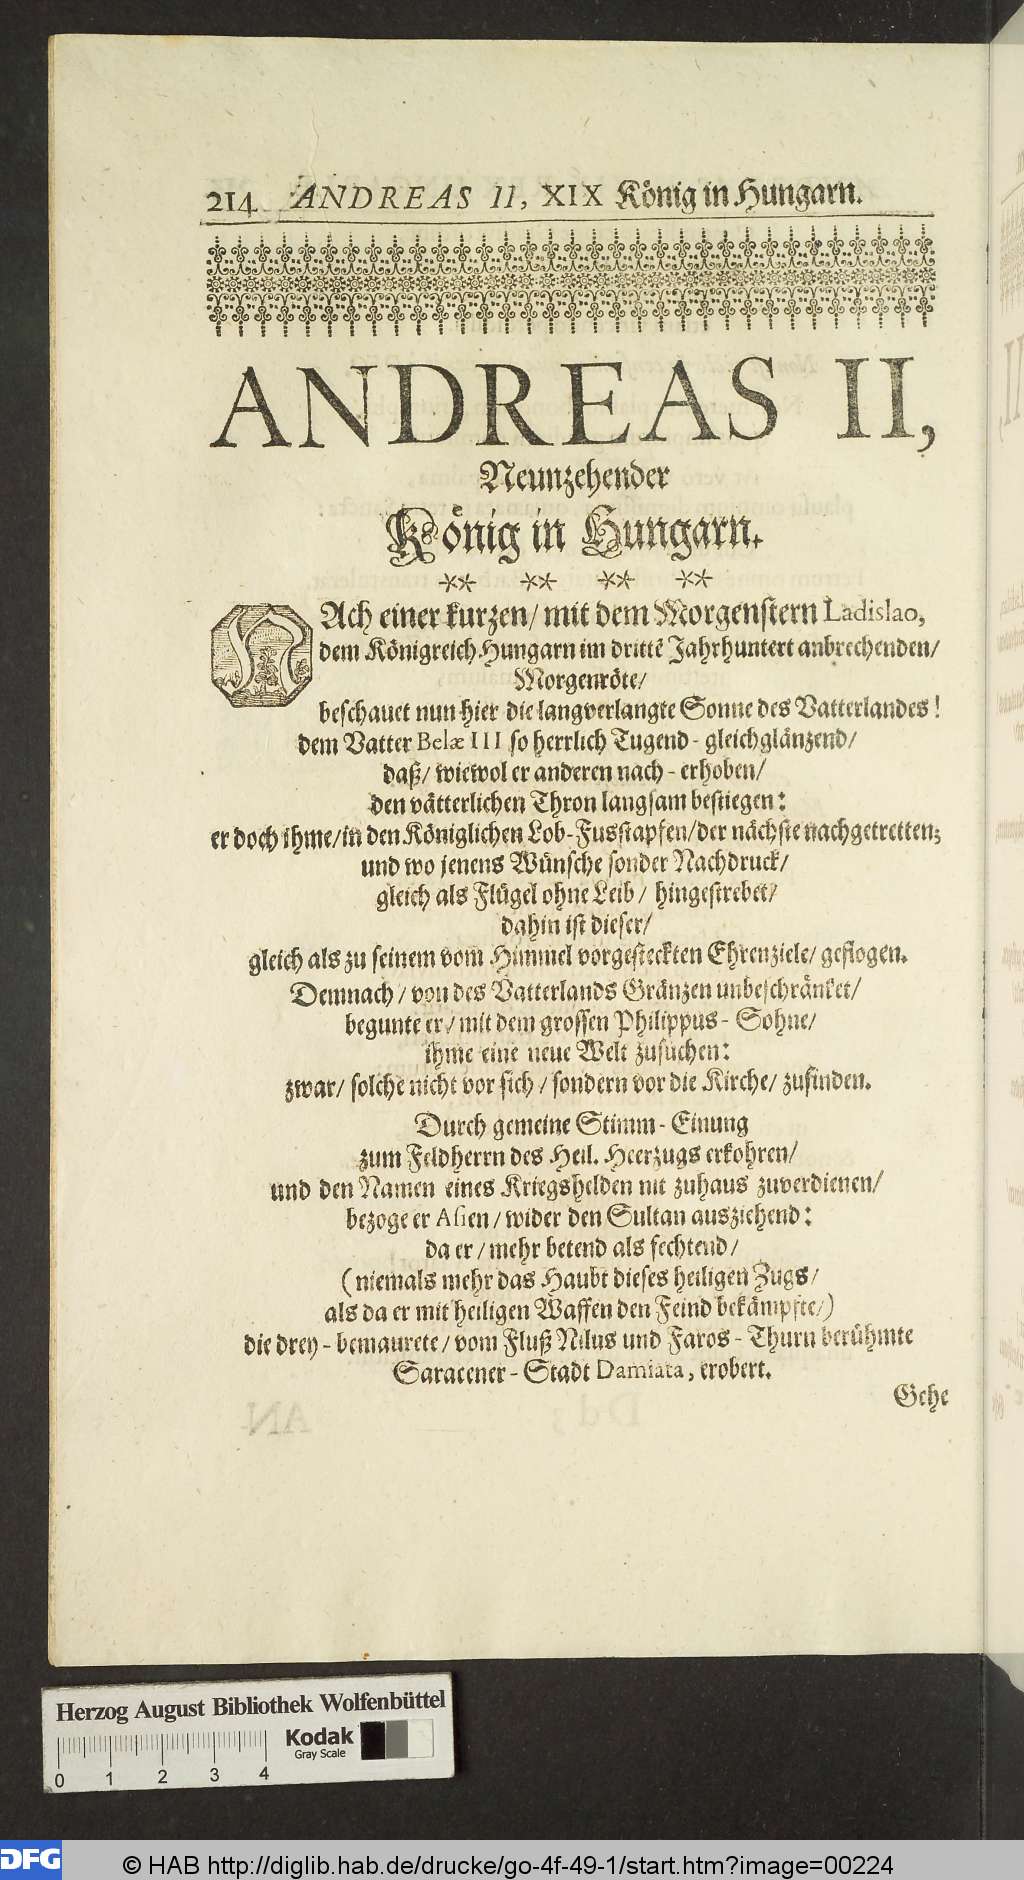 214 ANDREAS II, XIX König in Hungarn.
ANDREAS II,
Neunzehender
König in Hungarn.
** ** ** **
NAch einer kurzen/ mit dem Morgenstern Ladislao,
dem Königreich Hungarn im drittē Jahrhuntert anbrechenden/
Morgenröte/
beschauet nun hier die langverlangte Sonne des Vatterlandes!
dem Vatter Belæ III so herrlich Tugend-gleichglänzend/
daß/ wiewol er anderen nach-erhoben/
den vätterlichen Thron langsam bestiegen:
er doch ihme/ in den Königlichen Lob-Fusstapfen/ der nächste nachgetretten;
und wo jenens Wünsche sonder Nachdruck/
gleich als Flügel ohne Leib/ hingestrebet/
dahin ist dieser/
gleich als zu seinem vom Himmel vorgesteckten Ehrenziele/ geflogen.
Demnach/ von des Vatterlands Gränzen unbeschränket/
begunte er/ mit dem grossen Philippus-Sohne/
ihme eine neue Welt zusuchen:
zwar/ solche nicht vor sich/ sondern vor die Kirche/ zufinden.
Durch gemeine Stimm-Einung
zum Feldherrn des Heil. Heerzugs erkohren/
und den Namen eines Kriegshelden nit zuhaus zuverdienen/
bezoge er Asien/ wider den Sultan ausziehend:
da er/ mehr betend als fechtend/
(niemals mehr das Haubt dieses heiligen Zugs/
als da er mit heiligen Waffen den Feind bekämpfte/)
die drey-bemaurete/ vom Fluß Nilus und Faros-Thurn berühmte
Saracener-Stadt Damiata, erobert.
Gehe
Herzog August Bibliothek Wolfenbüttel
Kodak
Gray Scale
0 1 2 3 4
DFG
© HAB http://diglib.hab.de/drucke/go-4f-49-1/start.htm?image=00224